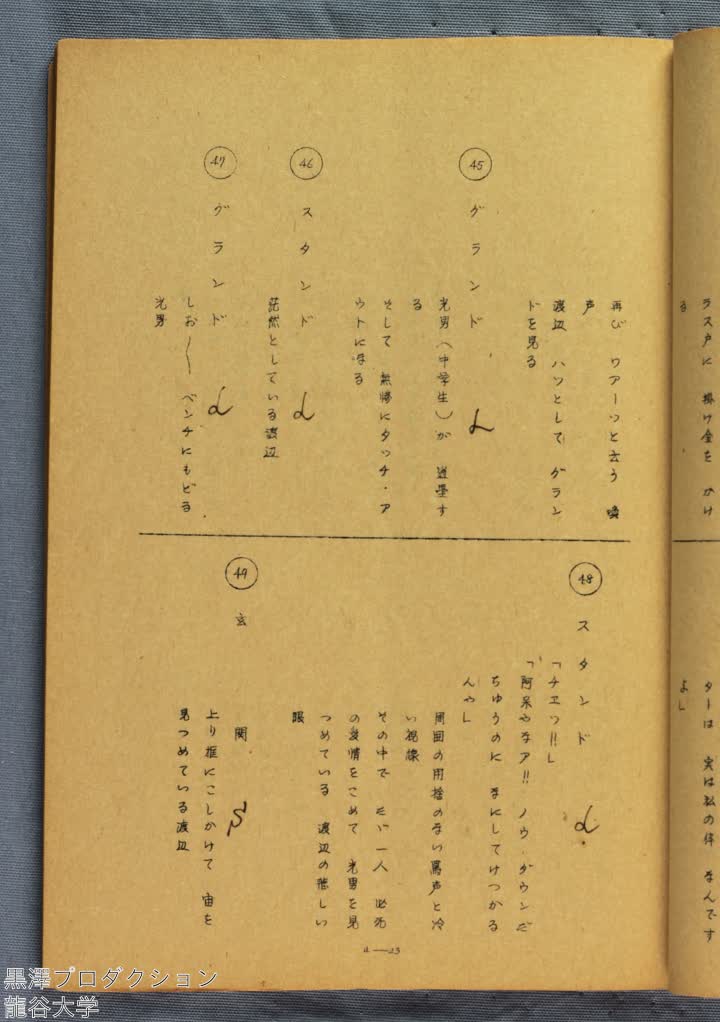 再び ワアーッと云う 喚
声
渡辺 ハッとして グラン
ドを見る
㊺ グランド L
光男(中学生)が 盗塁す
る
そして 無惨にタッチ・ア
ウトになる
㊻ スタンド d
茫然としている渡辺
㊼ グランド d
しお〱 ベンチにもどる
光男
㊽ スタンド d
「チエッ!!」
「阿呆やなア!! ノウ・ダウンだ
ちゅうのに なにしてけつかる
んや」
周囲の用捨のない罵声と冷
い視線
その中で たゞ一人 必死
の愛情をこめて 光男を見
つめている 渡辺の悲しい
眼
㊾ 玄関 S
上り框にこしかけて 宙を
見つめている渡辺
a—23
ラス戸に 掛け金を かけ
る
ターは 実は私の伜 なんです
よ」
黒澤プロダクション
龍谷大学